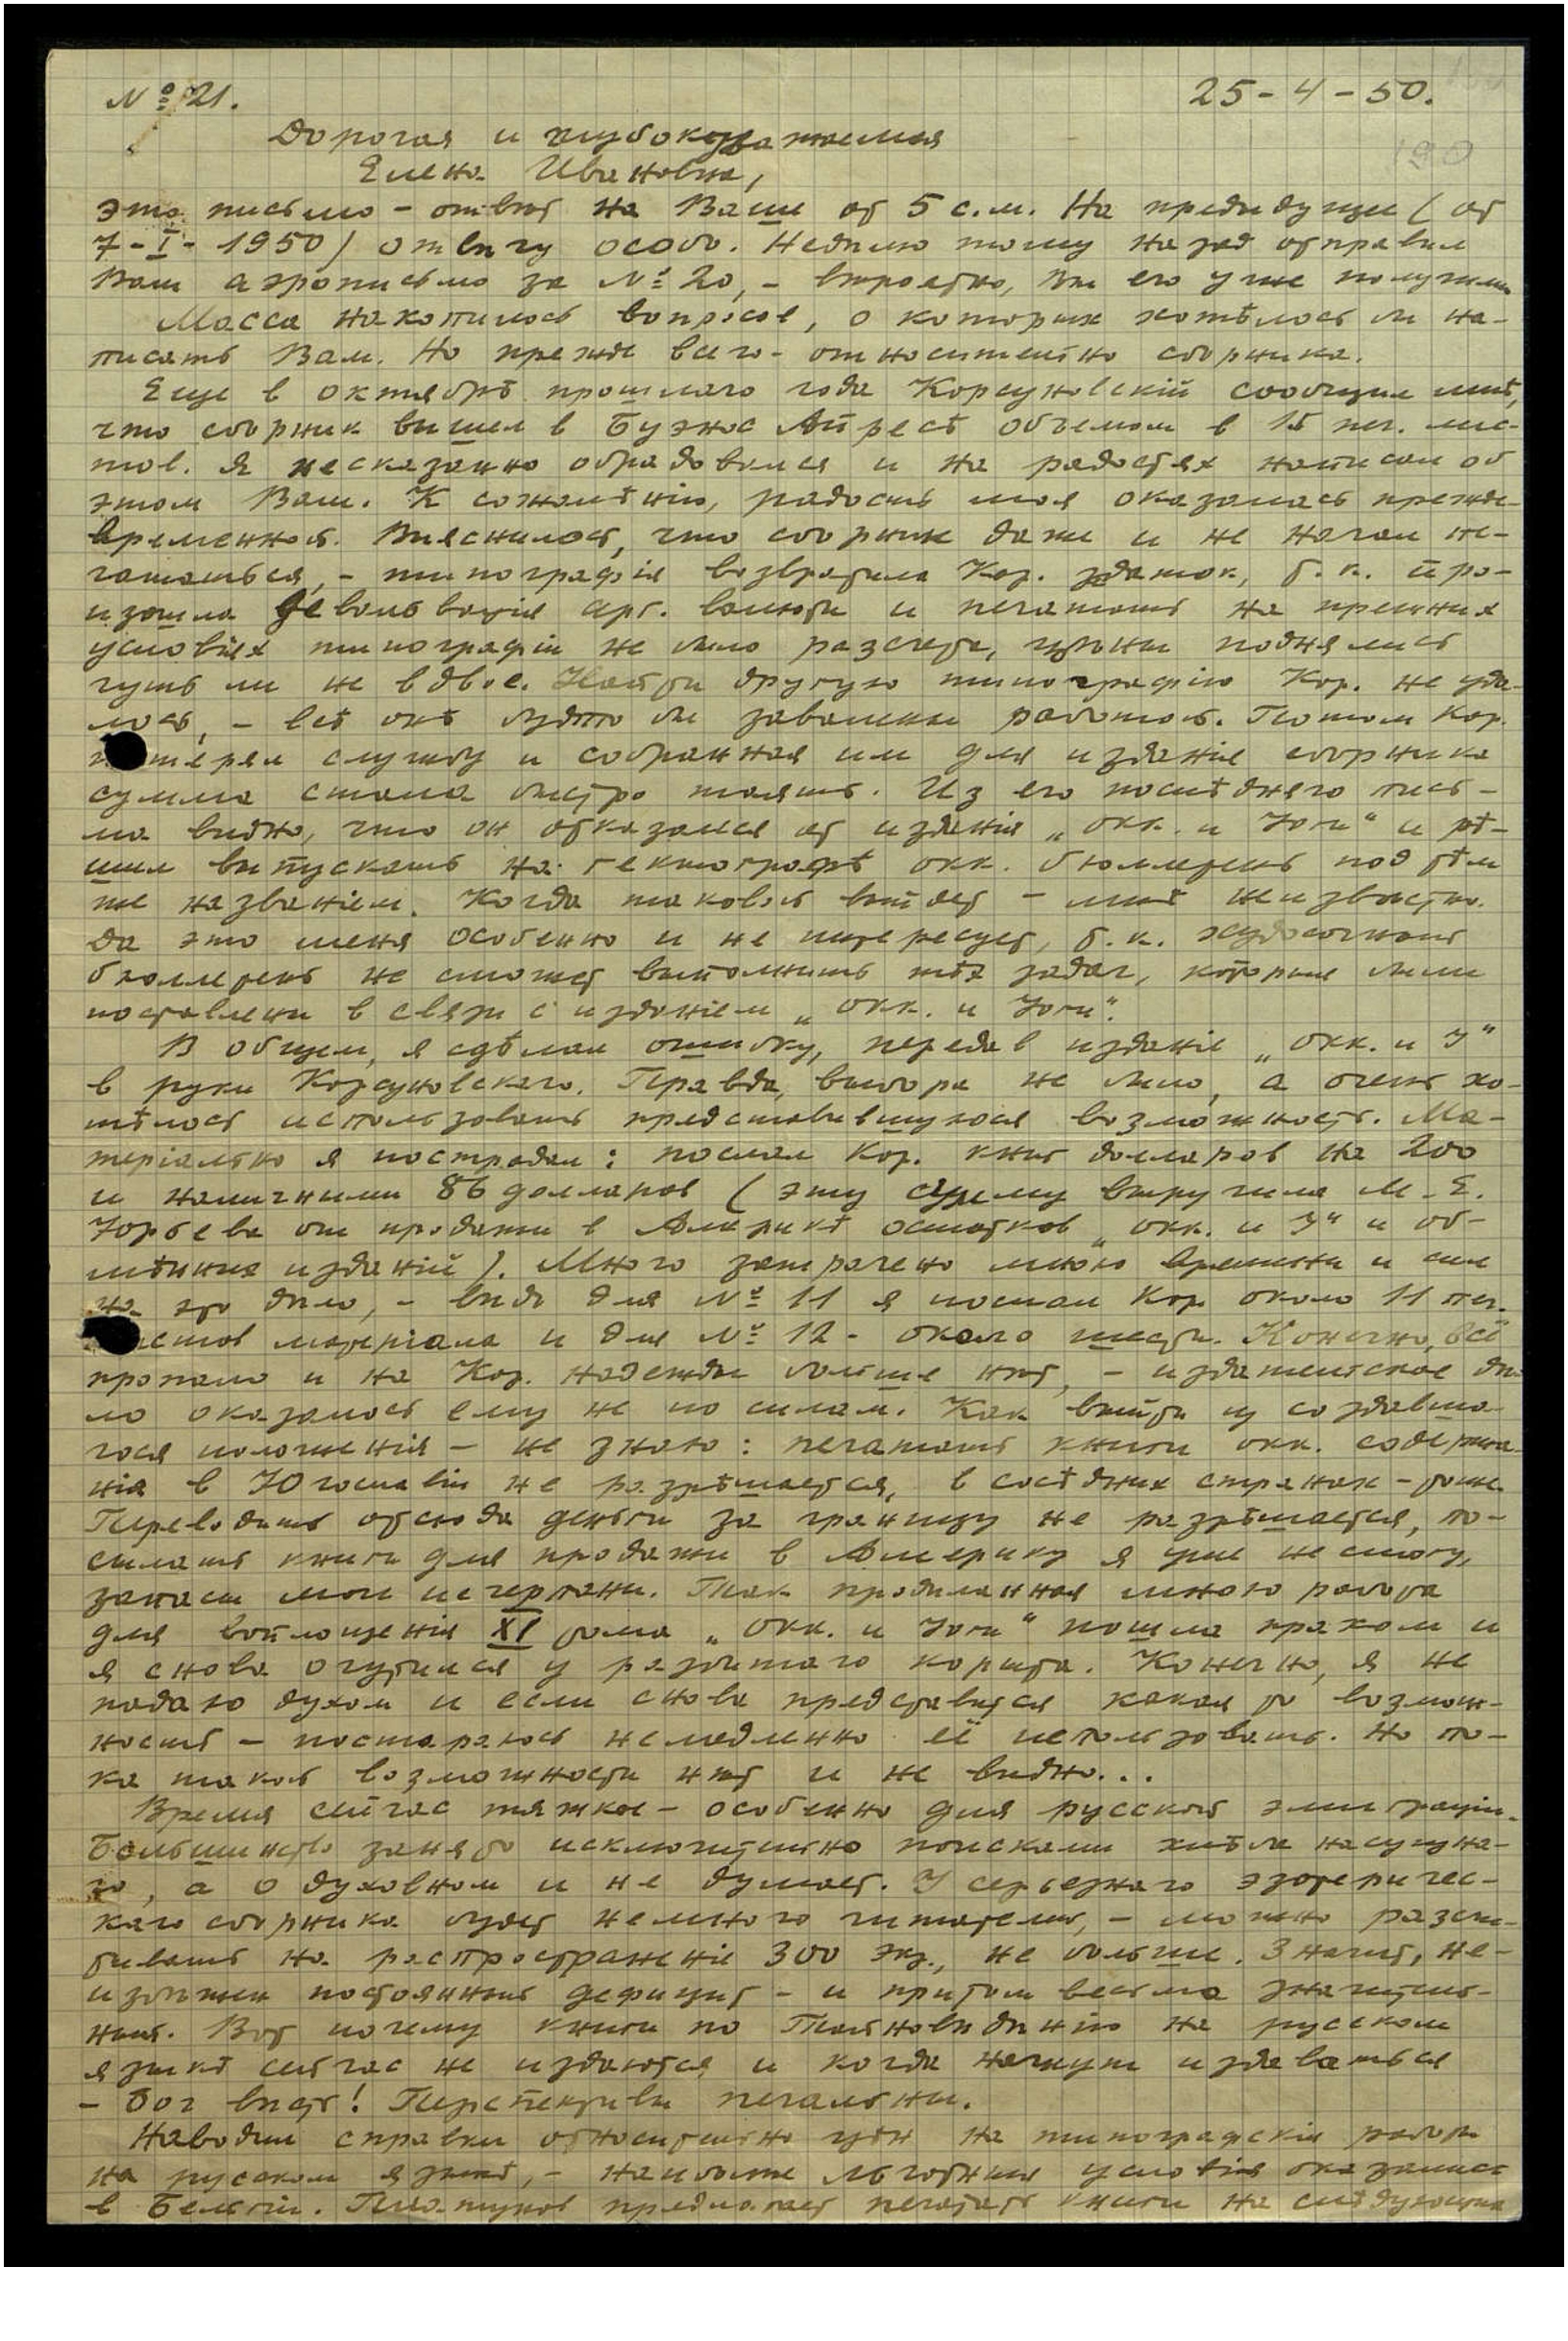 № 21.
25-4-50.
190
Дорогая и глубокоуважаемая
Елена Ивановна,
это письмо - ответ на Ваше от 5 с.м. На предидущее (от
7-I-1950) отвечу особо. Неделю тому назад отправил
Вам аэрописьмо за № 20, - вероятно, Вы его уже получили
Масса накопилось вопросов, о которых хотѣлось бы на-
писать Вам. Но прежде всего - относительно сборника.
Еще в октябрѣ прошлаго года Корсуновскій сообщил мнѣ,
что сборник вышел в Буэнос Айресѣ объемом в 15 печ. лис-
тов. Я несказанно обрадовался и на радостях написал об
этом Вам. К сожалѣнію, радость моя оказалась прежде-
временной. Выяснилось, что сборник даже и не начал пе-
чататься, - типографія возвратила Кор. задаток, т.к. про-
изошла девальвація арг. валюты и печатать на прежних
условіях типографіи не было разсчета, цѣны поднялись
чуть ли не вдвое. Найти другую типографію Кор. не уда-
лось, - всѣ онѣ будто бы завалены работой. Потом Кор.
потерял службу и собранная им для изданія сборника
сумма стала быстро таять. Из его послѣдняго пись-
ма видно, что он отказался от изданія „Окк. и Йоги" и рѣ-
шил выпускать на гектографѣ окк. бюллетень под тѣм
же названіем. Когда таковой выйдет - мнѣ неизвѣстно.
Да это меня особенно и не интересует, т.к. худосочный
бюллетень не сможет выполнить тѣх задач, которые были
поставлены в связи с изданіем „Окк. и Йоги".
В общем, я сдѣлал ошибку, передав изданіе „Окк. и Й"
в руки Корсуновскаго. Правда, выбора не было, а очень хо-
тѣлось использовать представившуюся возможность. Ма-
теріально я пострадал: послал Кор. книг долларов на 200
и наличными 86 долларов (эту сумму выручила М.Е.
Юрьева от продажи в Америкѣ остатков „Окк. и Й" и об-
мѣнных изданій). Много затрачено мною времени и сил
на это дѣло, - вѣдь для № 11 я послал Кор. около 11 печ.
листов матеріала и для № 12 - около шести. Конечно, всё
пропало и на Кор. надежды больше нѣт, - издательское дѣ-
ло оказалось ему не по силам. Как выйти из создавша-
гося положенія - не знаю: печатать книги окк. содержа-
нія в Югославіи не разрѣшается, в сосѣдних странах - тоже.
Переводить отсюда деньги за границу не разрѣшается, по-
сылать книги для продажи в Америку я уже не смогу,
запасы мои исчерпаны. Так продѣланная мною работа
для воплощенія XI тома „Окк. и Йоги" пошла прахом и
я снова очутился у разбитаго корыта. Конечно, я не
падаю духом и если снова представится какая то возмож-
ность - постараюсь немедленно её использовать. Но по-
ка такой возможности нѣт и не видно...
Время сейчас тяжкое - особенно для русской эмиграціи.
Большинство занято исключительно поисками хлѣба насущна-
го, а о духовном и не думает. У серьезнаго эзотеричес-
каго сборника будет немного читателей, - можно разсчи-
тывать на распространеніе 300 экз., не больше. Значит, не-
избѣжен постоянный дефицит - и притом весьма значитель-
ный. Вот почему книги по Тайновѣдѣнію на русском
языкѣ сейчас не издаются и когда начнут издаваться
- Бог вѣсть! Перспективы печальны.
Наводил справки относительно цѣн на типографскія работы
на русском языкѣ, - наиболѣе льготныя условія оказались
в Бельгіи. предлагает печатать книги на слѣдующих